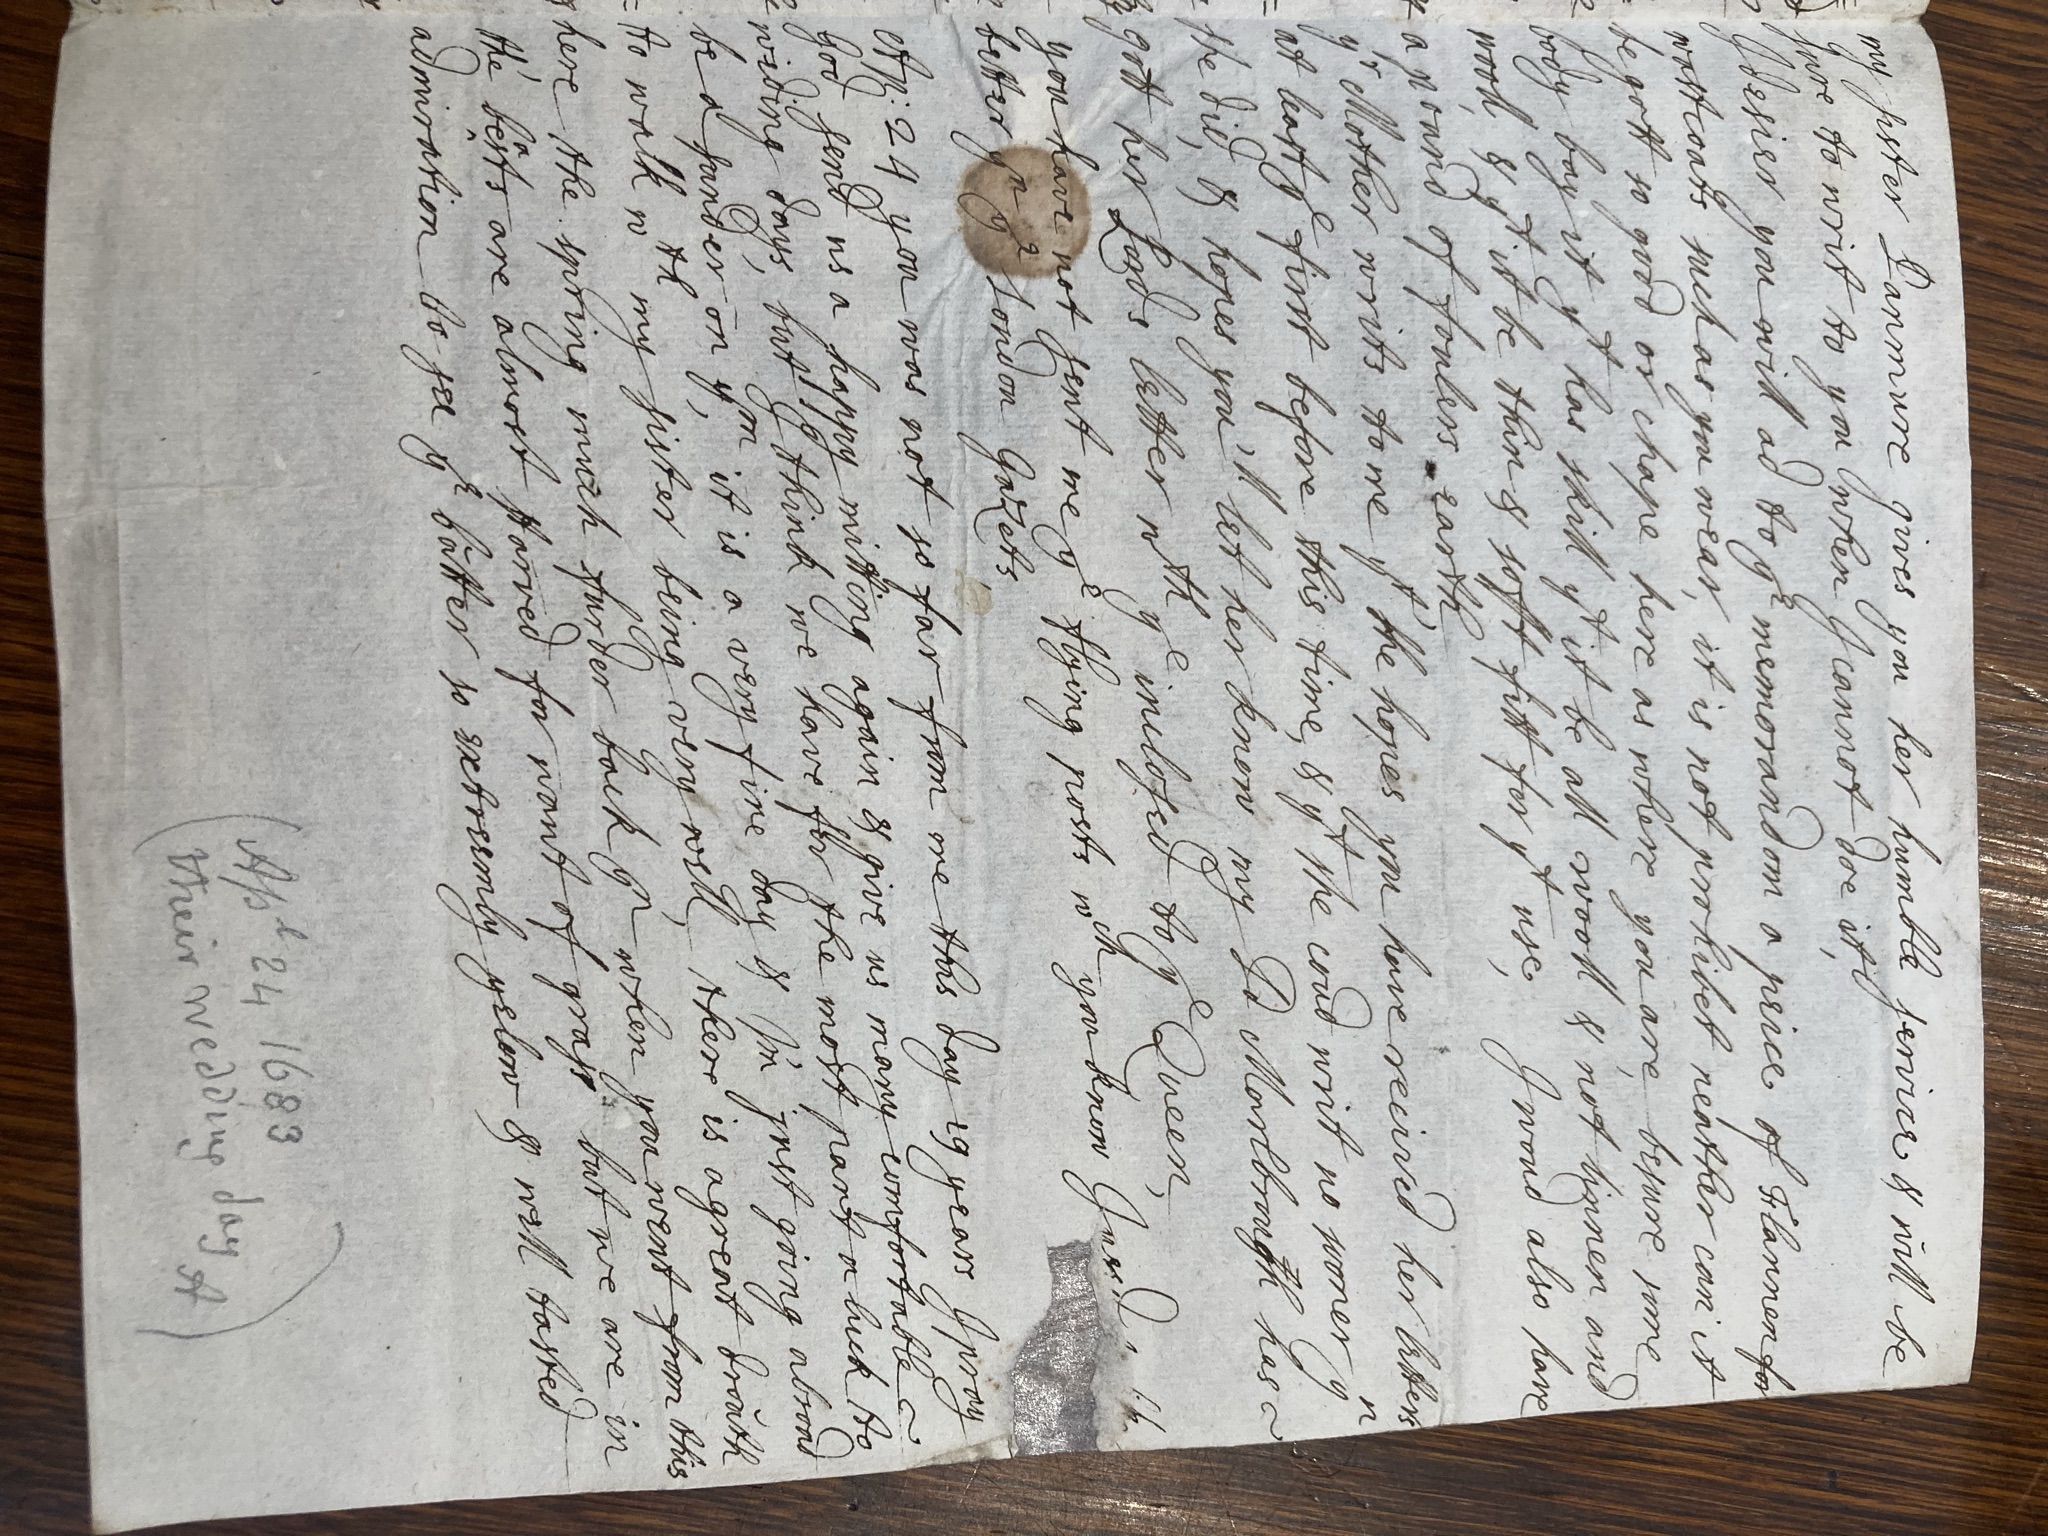 my sister Panmure gives you her humble service & will be
sure to writ to you when I cannot doe it,
I desier you will ad to yᵉ memorandom a peice of Flannen for
wastcoats such as you wear, it is not prohibet neather can it
be gott so good or chape here as where you are, besure some
body bay it yᵗ has skill yᵗ it be all wooll & not linnen and
wooll, & yᵗ it be thin & sofft fitt for yᵗ use, I woud also have
a pound of foulers earth,
yʳ Mother writs to me yᵗ she hopes you have recived her letters
at least yᵉ first before this time, & yᵗ she coud writ no sooner yⁿ
she did, & hopes you'll let her know my Ld Marlbrough has ~
gott her Lords letter wᵗʰ yᵉ inclosed to yᵉ Queen,
you have not sent me yᵉ flying posts wᶜʰ you know I
better yⁿ yᵉ London Gazets,
Ap: 24 you was not so far from me this day 19 years I pray
God send us a happy mitting again & give us many comfortable ~
widing days, but I think we have for the most part a luck to
be a sunder on yᵐ, it is a very fine day & I'm just going abroad
to walk wᵗʰ my sister being very well, there is a great drouth
here the spring much furder back yⁿ when you went from this
the beasts are almost starved for want of grass but we are in
admiration to see yᵉ batter so extreemly yelow & well tasted
(Apˡ 24 1683
their wedding day A)